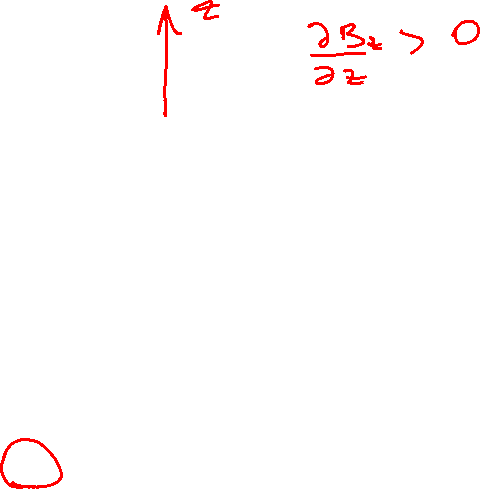 z
∂B_z/∂z > 0